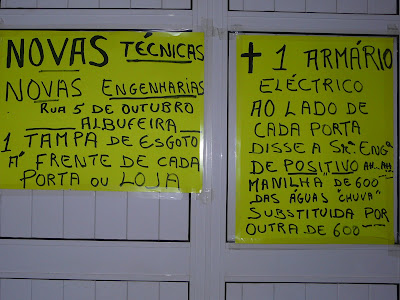 NOVAS TÉCNICAS
NOVAS ENGENHARIAS
RUA 5 DE OUTUBRO
ALBUFEIRA
1 TAMPA DE ESGOTO
A' FRENTE DE CADA
PORTA OU LOJA
+ 1 ARMÁRIO
ELÉCTRICO
AO LADO DE
CADA PORTA
DISSE A SRª. ENGª
DE POSITIVO AH... AAA
MANILHA DE 600
DAS ÁGUAS "CHUVA"
SUBSTITUIDA POR
OUTRA DE 600